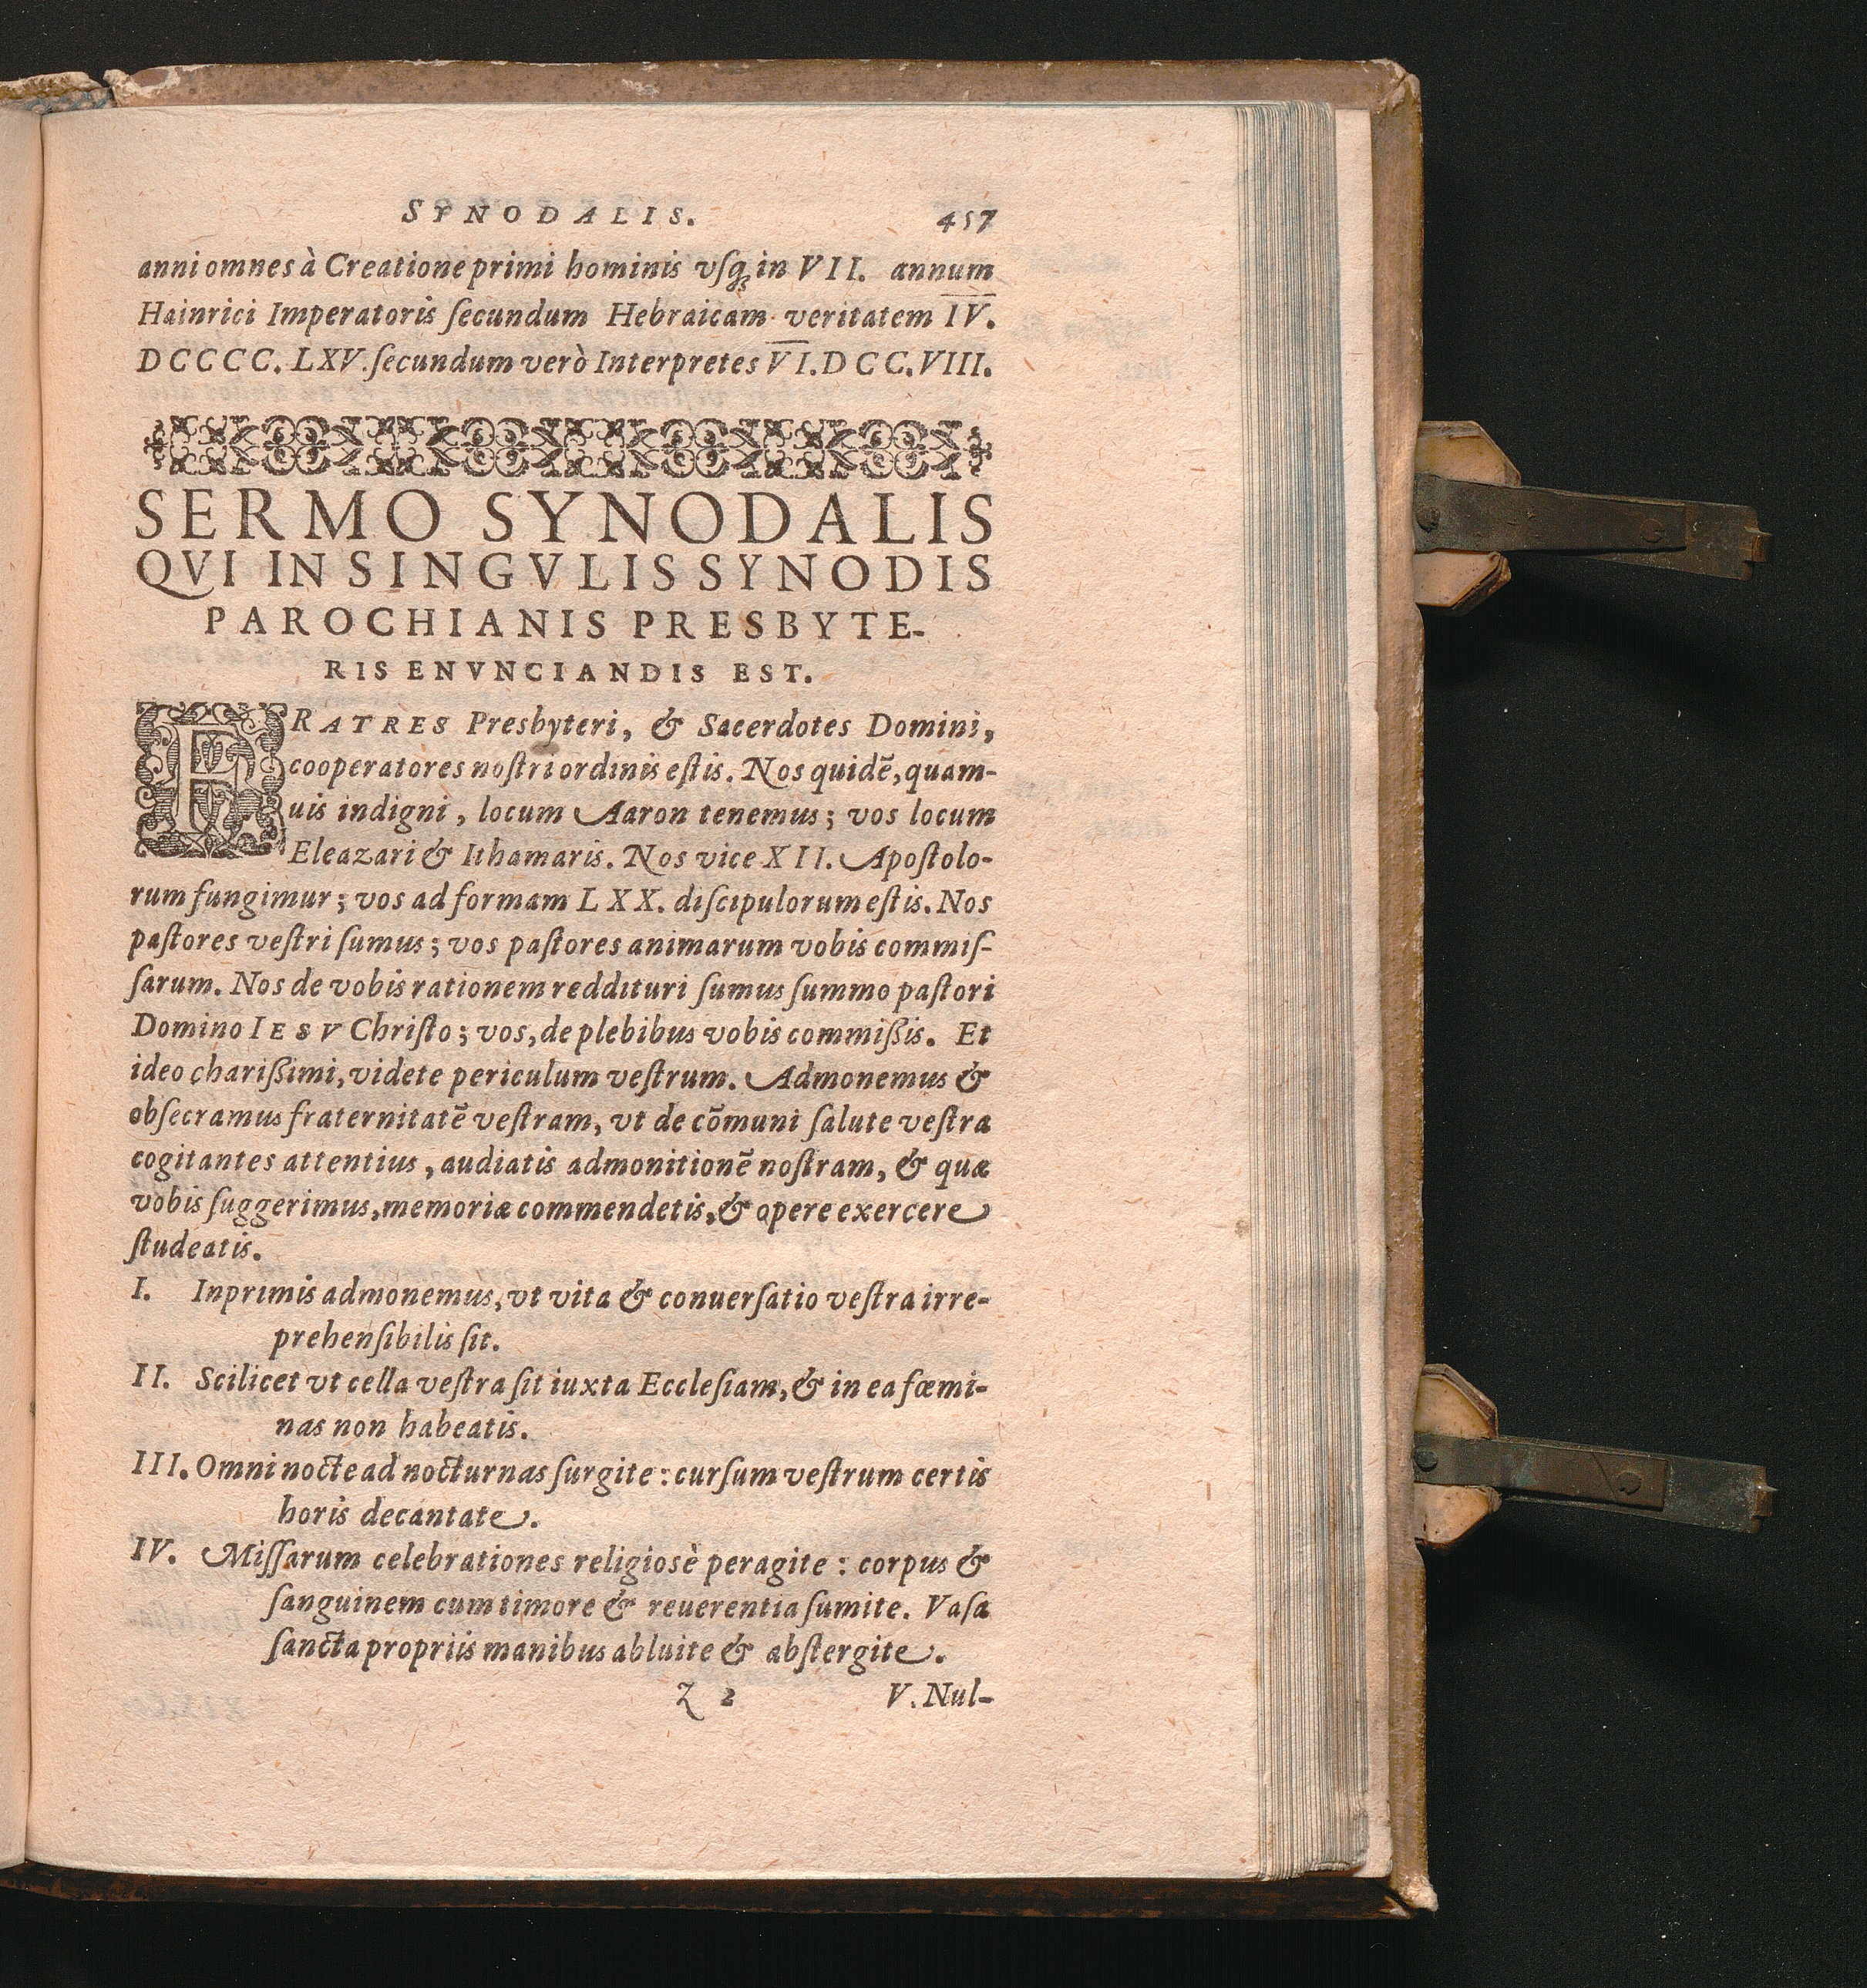 SYNODALIS. 457
anni omnes à Creatione primi hominis vſq; in VII. annum
Hainrici Imperatoris ſecundum Hebraicam veritatem I̅V̅.
DCCCC. LXV. ſecundum verò Interpretes V̅I̅. DCC. VIII.
SERMO SYNODALIS
QVI IN SINGVLIS SYNODIS
PAROCHIANIS PRESBYTE-
RIS ENVNCIANDIS EST.
FRATRES Presbyteri, & Sacerdotes Domini,
cooperatores noſtri ordinis eſtis. Nos quidē, quam-
uis indigni, locum Aaron tenemus; vos locum
Eleazari & Ithamaris. Nos vice XII. Apoſtolo-
rum fungimur; vos ad formam LXX. diſcipulorum eſtis. Nos
paſtores veſtri ſumus; vos paſtores animarum vobis commiſ-
ſarum. Nos de vobis rationem reddituri ſumus ſummo paſtori
Domino IESV Chriſto; vos, de plebibus vobis commißis. Et
ideo charißimi, videte periculum veſtrum. Admonemus &
obſecramus fraternitatē veſtram, vt de cōmuni ſalute veſtra
cogitantes attentius, audiatis admonitionē noſtram, & quæ
vobis ſuggerimus, memoriæ commendetis, & opere exercere
ſtudeatis.
I. Inprimis admonemus, vt vita & conuerſatio veſtra irre-
prehenſibilis ſit.
II. Scilicet vt cella veſtra ſit iuxta Eccleſiam, & in ea fœmi-
nas non habeatis.
III. Omni nocte ad nocturnas ſurgite: curſum veſtrum certis
horis decantate.
IV. Miſſarum celebrationes religiosè peragite: corpus &
ſanguinem cum timore & reuerentia ſumite. Vaſa
ſancta propriis manibus abluite & abſtergite.
Z 2 V. Nul-